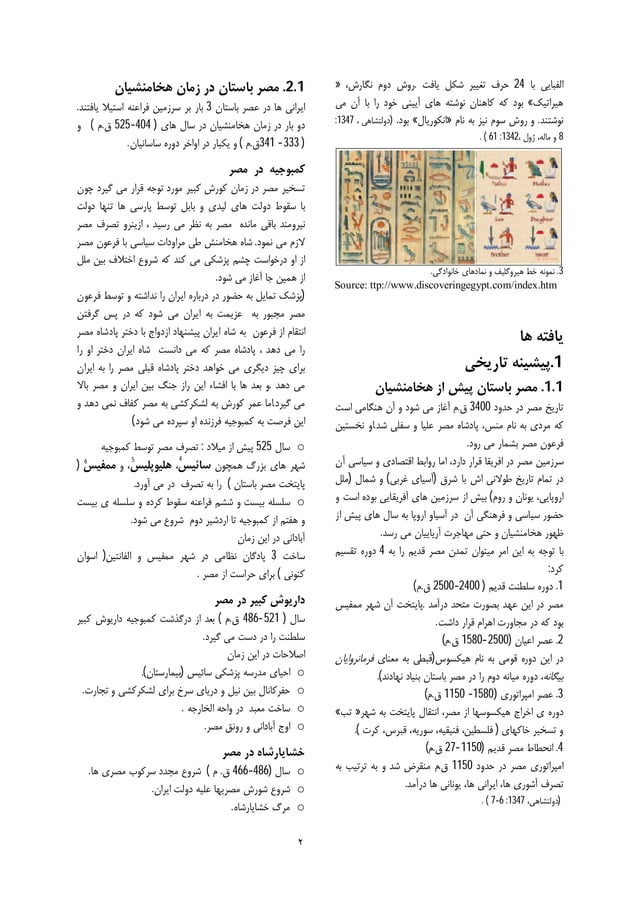 الفبایی با 24 حرف تغییر شکل یافت .روش دوم نگارش، «
هیراتیک» بود که کاهنان نوشته های آیینی خود را با آن می
نوشتند. و روش سوم نیز به نام «انکوریال» بود. (دولتشاهی ، 1347:
8 و ماله، ژول ،1342: 61 ) .
Father
Mother
Son
Daughter
Brother
Sister
3. نمونه خط هیروگلیف و نمادهای خانوادگی.
Source: ttp://www.discoveringegypt.com/index.htm
یافته ها
1.پیشینه تاریخی
1.1. مصر باستان پیش از هخامنشیان
تاریخ مصر در حدود 3400 ق.م آغاز می شود و آن هنگامی است
که مردی به نام منس، پادشاه مصر علیا و سفلی شد.او نخستین
فرعون مصر بشمار می رود.
سرزمین مصر در افریقا قرار دارد، اما روابط اقتصادی و سیاسی آن
در تمام تاریخ طولانی اش با شرق (آسیای غربی) و شمال (ملل
اروپایی، یونان و روم) بیش از سرزمین های آفریقایی بوده است و
حضور سیاسی و فرهنگی آن در آسیاو اروپا به سال های پیش از
ظهور هخامنشیان و حتی مهاجرت آریاییان می رسد.
با توجه به این امر میتوان تمدن مصر قدیم را به 4 دوره تقسیم
کرد:
1. دوره سلطنت قدیم ( 2400-2500 ق.م)
مصر در این عهد بصورت متحد درآمد .پایتخت آن شهر ممفیس
بود که در مجاورت اهرام قرار داشت.
2. عصر اعیان (2500-1580 ق.م)
در این دوره قومی به نام هیکسوس(قبطی به معنای فرمانروایان
بیگانه، دوره میانه دوم را در مصر باستان بنیاد نهادند).
3. عصر امپراتوری (1580- 1150 ق.م)
دوره ی اخراج هیکسوسها از مصر، انتقال پایتخت به شهر« تب»
و تسخیر خاکهای ( فلسطین، فنیقیه، سوریه، قبرس، کرت ).
4. انحطاط مصر قدیم (1150-27 ق.م)
امپراتوری مصر در حدود 1150 ق.م منقرض شد و به ترتیب به
تصرف آشوری ها، ایرانی ها، یونانی ها درآمد.
(دولتشاهی، 1347: 6-7 ) .
2.1. مصر باستان در زمان هخامنشیان
ایرانی ها در عصر باستان 3 بار بر سرزمین فراعنه استیلا یافتند.
دو بار در زمان هخامنشیان در سال های ( 404-525 ق.م ) و
( 333- 341ق.م ) و یکبار در اواخر دوره ساسانیان.
کمبوجیه در مصر
تسخیر مصر در زمان کورش کبیر مورد توجه قرار می گیرد چون
با سقوط دولت های لیدی و بابل توسط پارسی ها تنها دولت
نیرومند باقی مانده مصر به نظر می رسید ، ازینرو تصرف مصر
لازم می نمود. شاه هخامنش طی مراودات سیاسی با فرعون مصر
از او درخواست چشم پزشکی می کند که شروع اختلاف بین ملل
از همین جا آغاز می شود.
(پزشک تمایل به حضور در درباره ایران را نداشته و توسط فرعون
مصر مجبور به عزیمت به ایران می شود که در پس گرفتن
انتقام از فرعون به شاه ایران پیشنهاد ازدواج با دختر پادشاه مصر
را می دهد ، پادشاه مصر که می دانست شاه ایران دختر او را
برای چیز دیگری می خواهد دختر پادشاه قبلی مصر را به ایران
می دهد .و بعد ها با افشاء این راز جنگ بین ایران و مصر بالا
می گیرد.اما عمر کورش به لشکرکشی به مصر کفاف نمی دهد و
این فرصت به کمبوجیه فرزنده او سپرده می شود)
○ سال 525 پیش از میلاد : تصرف مصر توسط کمبوجیه
شهر های بزرگ همچون سائیس4، هلیوپلیس5، و ممفیس6 (
پایتخت مصر باستان ) را به تصرف در می آورد.
○ سلسله بیست و ششم فراعنه سقوط کرده و سلسله ی بیست
و هفتم از کمبوجیه تا اردشیر دوم شروع می شود.
آبادانی در این زمان
ساخت 3 پادگان نظامی در شهر ممفیس و الفانتین( اسوان
کنونی ) برای حراست از مصر .
داریوش کبیر در مصر
سال ( 521-486 ق.م ) بعد از درگذشت کمبوجیه داریوش کبیر
سلطنت را در دست می گیرد.
اصلاحات در این زمان
○ احیای مدرسه پزشکی سائیس (بیمارستان).
○ حفرکانال بین نیل و دریای سرخ برای لشکرکشی و تجارت.
○ ساخت معبد در واحه الخارجه .
○ اوج آبادانی و رونق مصر.
خشایارشاه در مصر
○ سال (486-466 ق. م ) شروع مجدد سرکوب مصری ها.
○ شروع شورش مصریها علیه دولت ایران.
○ مرگ خشایارشاه.
۲